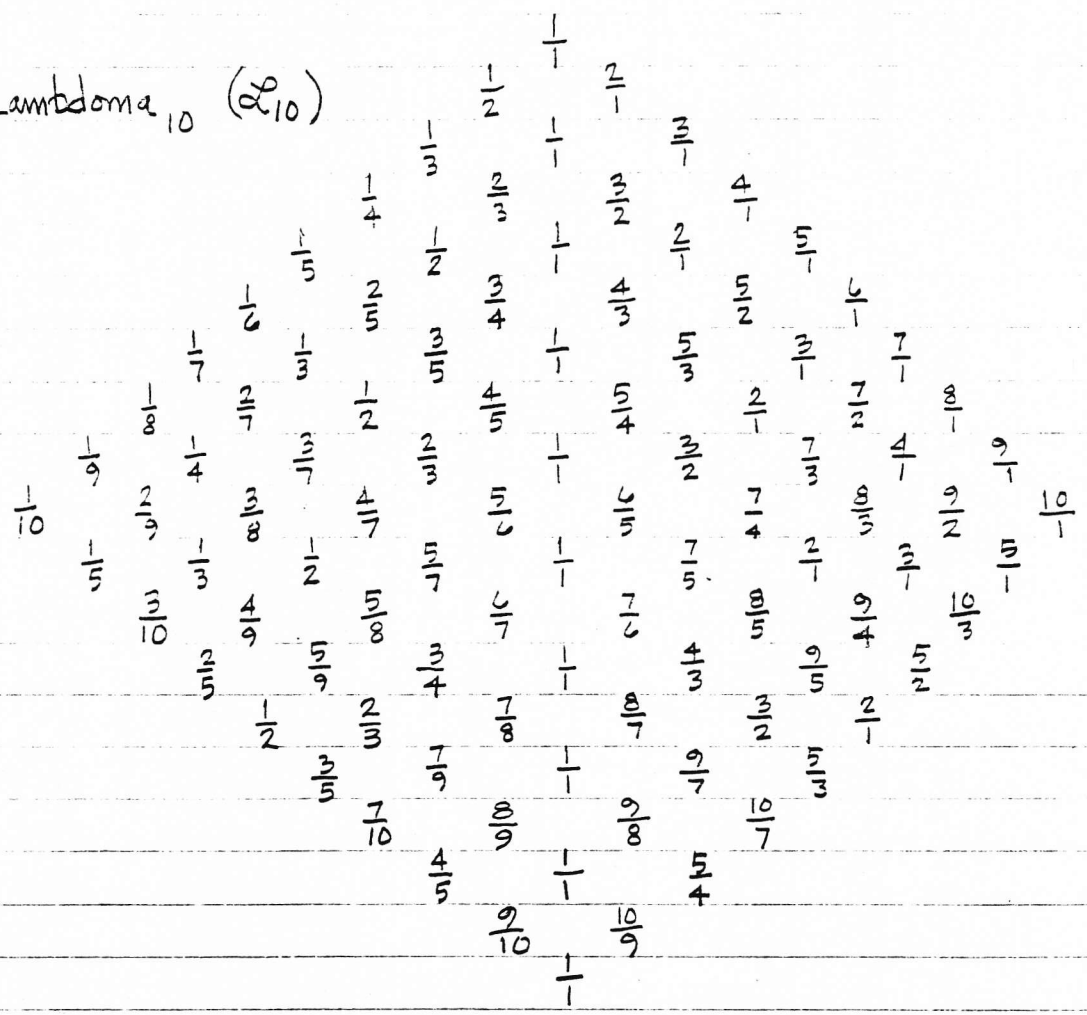 1/1
Lambdoma 10 (ℒ10)
1/2 2/1
1/3 1/1 3/1
1/4 2/3 3/2 4/1
1/5 1/2 1/1 2/1 5/1
1/6 2/5 3/4 4/3 5/2 6/1
1/7 1/3 3/5 1/1 5/3 3/1 7/1
1/8 2/7 1/2 4/5 5/4 2/1 7/2 8/1
1/9 1/4 3/7 2/3 1/1 3/2 7/3 4/1 9/1
1/10 2/9 3/8 4/7 5/6 6/5 7/4 8/3 9/2 10/1
1/5 1/3 1/2 5/7 1/1 7/5 2/1 3/1 5/1
3/10 4/9 5/8 6/7 7/6 8/5 9/4 10/3
2/5 5/9 3/4 1/1 4/3 9/5 5/2
1/2 2/3 7/8 8/7 3/2 2/1
3/5 7/9 1/1 9/7 5/3
7/10 8/9 9/8 10/7
4/5 1/1 5/4
9/10 10/9
1/1